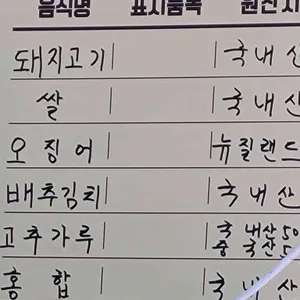 음식명 표시품목 원산지
돼지고기 국내산
쌀 국내산
오징어 뉴질랜드
배추김치 국내산
고추가루 국내산50
중국산5
홍합 국내산